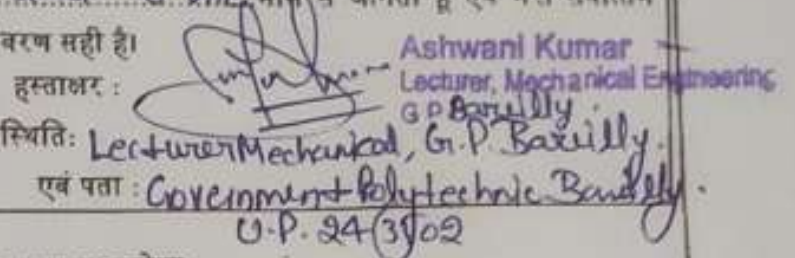 वरण सही है।
हस्ताक्षर :
Ashwani Kumar
Lecturer, Mechanical Engineering
G P Bareilly.
स्थिति: Lecturer Mechanical, G.P. Bareilly.
एवं पता : Government Polytechnic Bareilly.
U.P. 243502